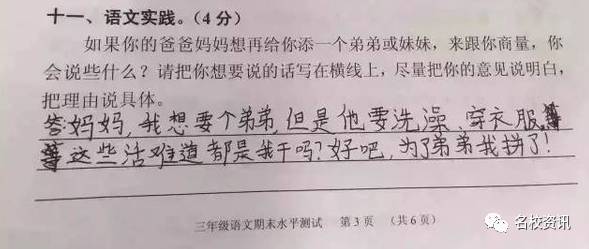 十一、语文实践。（4分）
如果你的爸爸妈妈想再给你添一个弟弟或妹妹，来跟你商量，你
会说些什么？请把你想要说的话写在横线上，尽量把你的意见说明白，
把理由说具体。
答妈妈，我想要个弟弟，但是他要洗澡、穿衣服等
等这些活难道都是我干吗？好吧，为了弟弟我拼了！
三年级语文期末水平测试 第3页 （共6页）
名校资讯